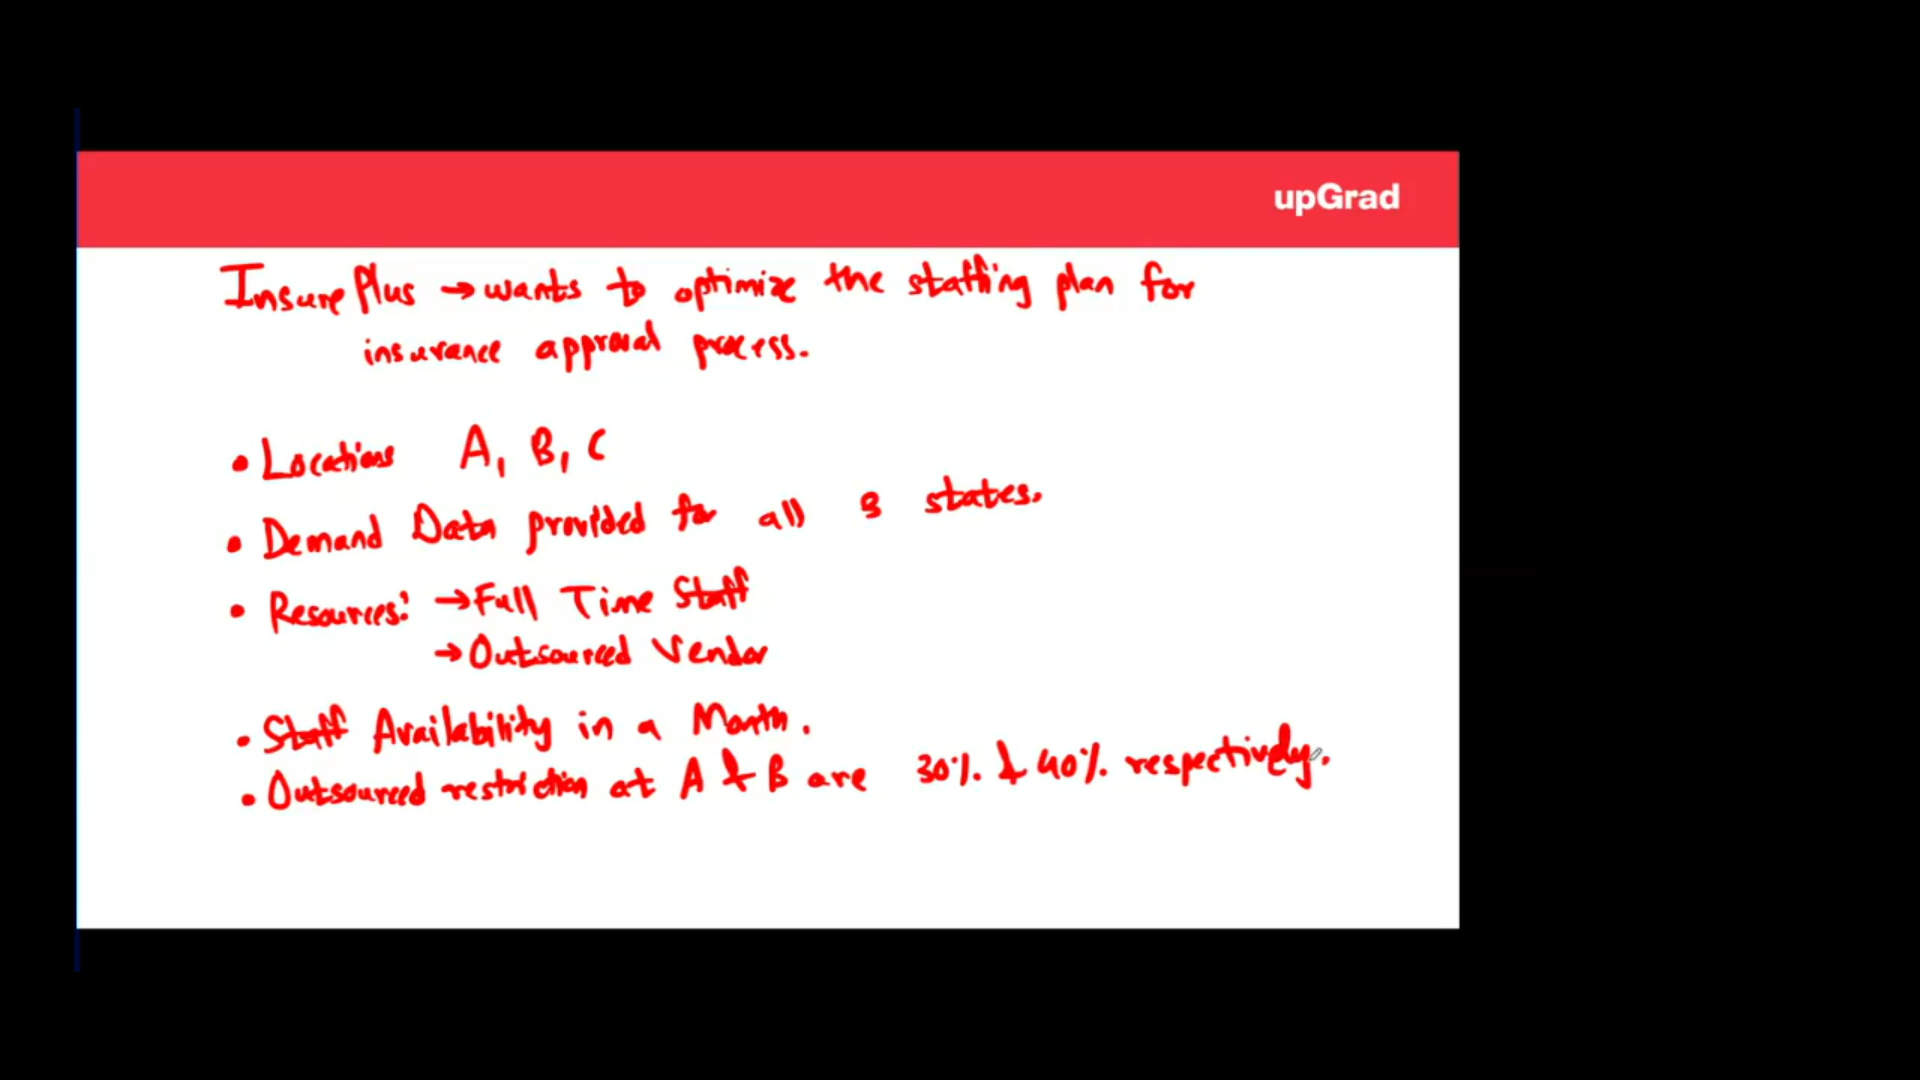 upGrad
InsurePlus → wants to optimize the staffing plan for
insurance approval process.
• Locations A, B, C
• Demand Data provided for all 3 states.
• Resources: → Full Time Staff
→ Outsourced Vendor
• Staff Availability in a Month.
• Outsourced restriction at A & B are 30% & 40% respectively.